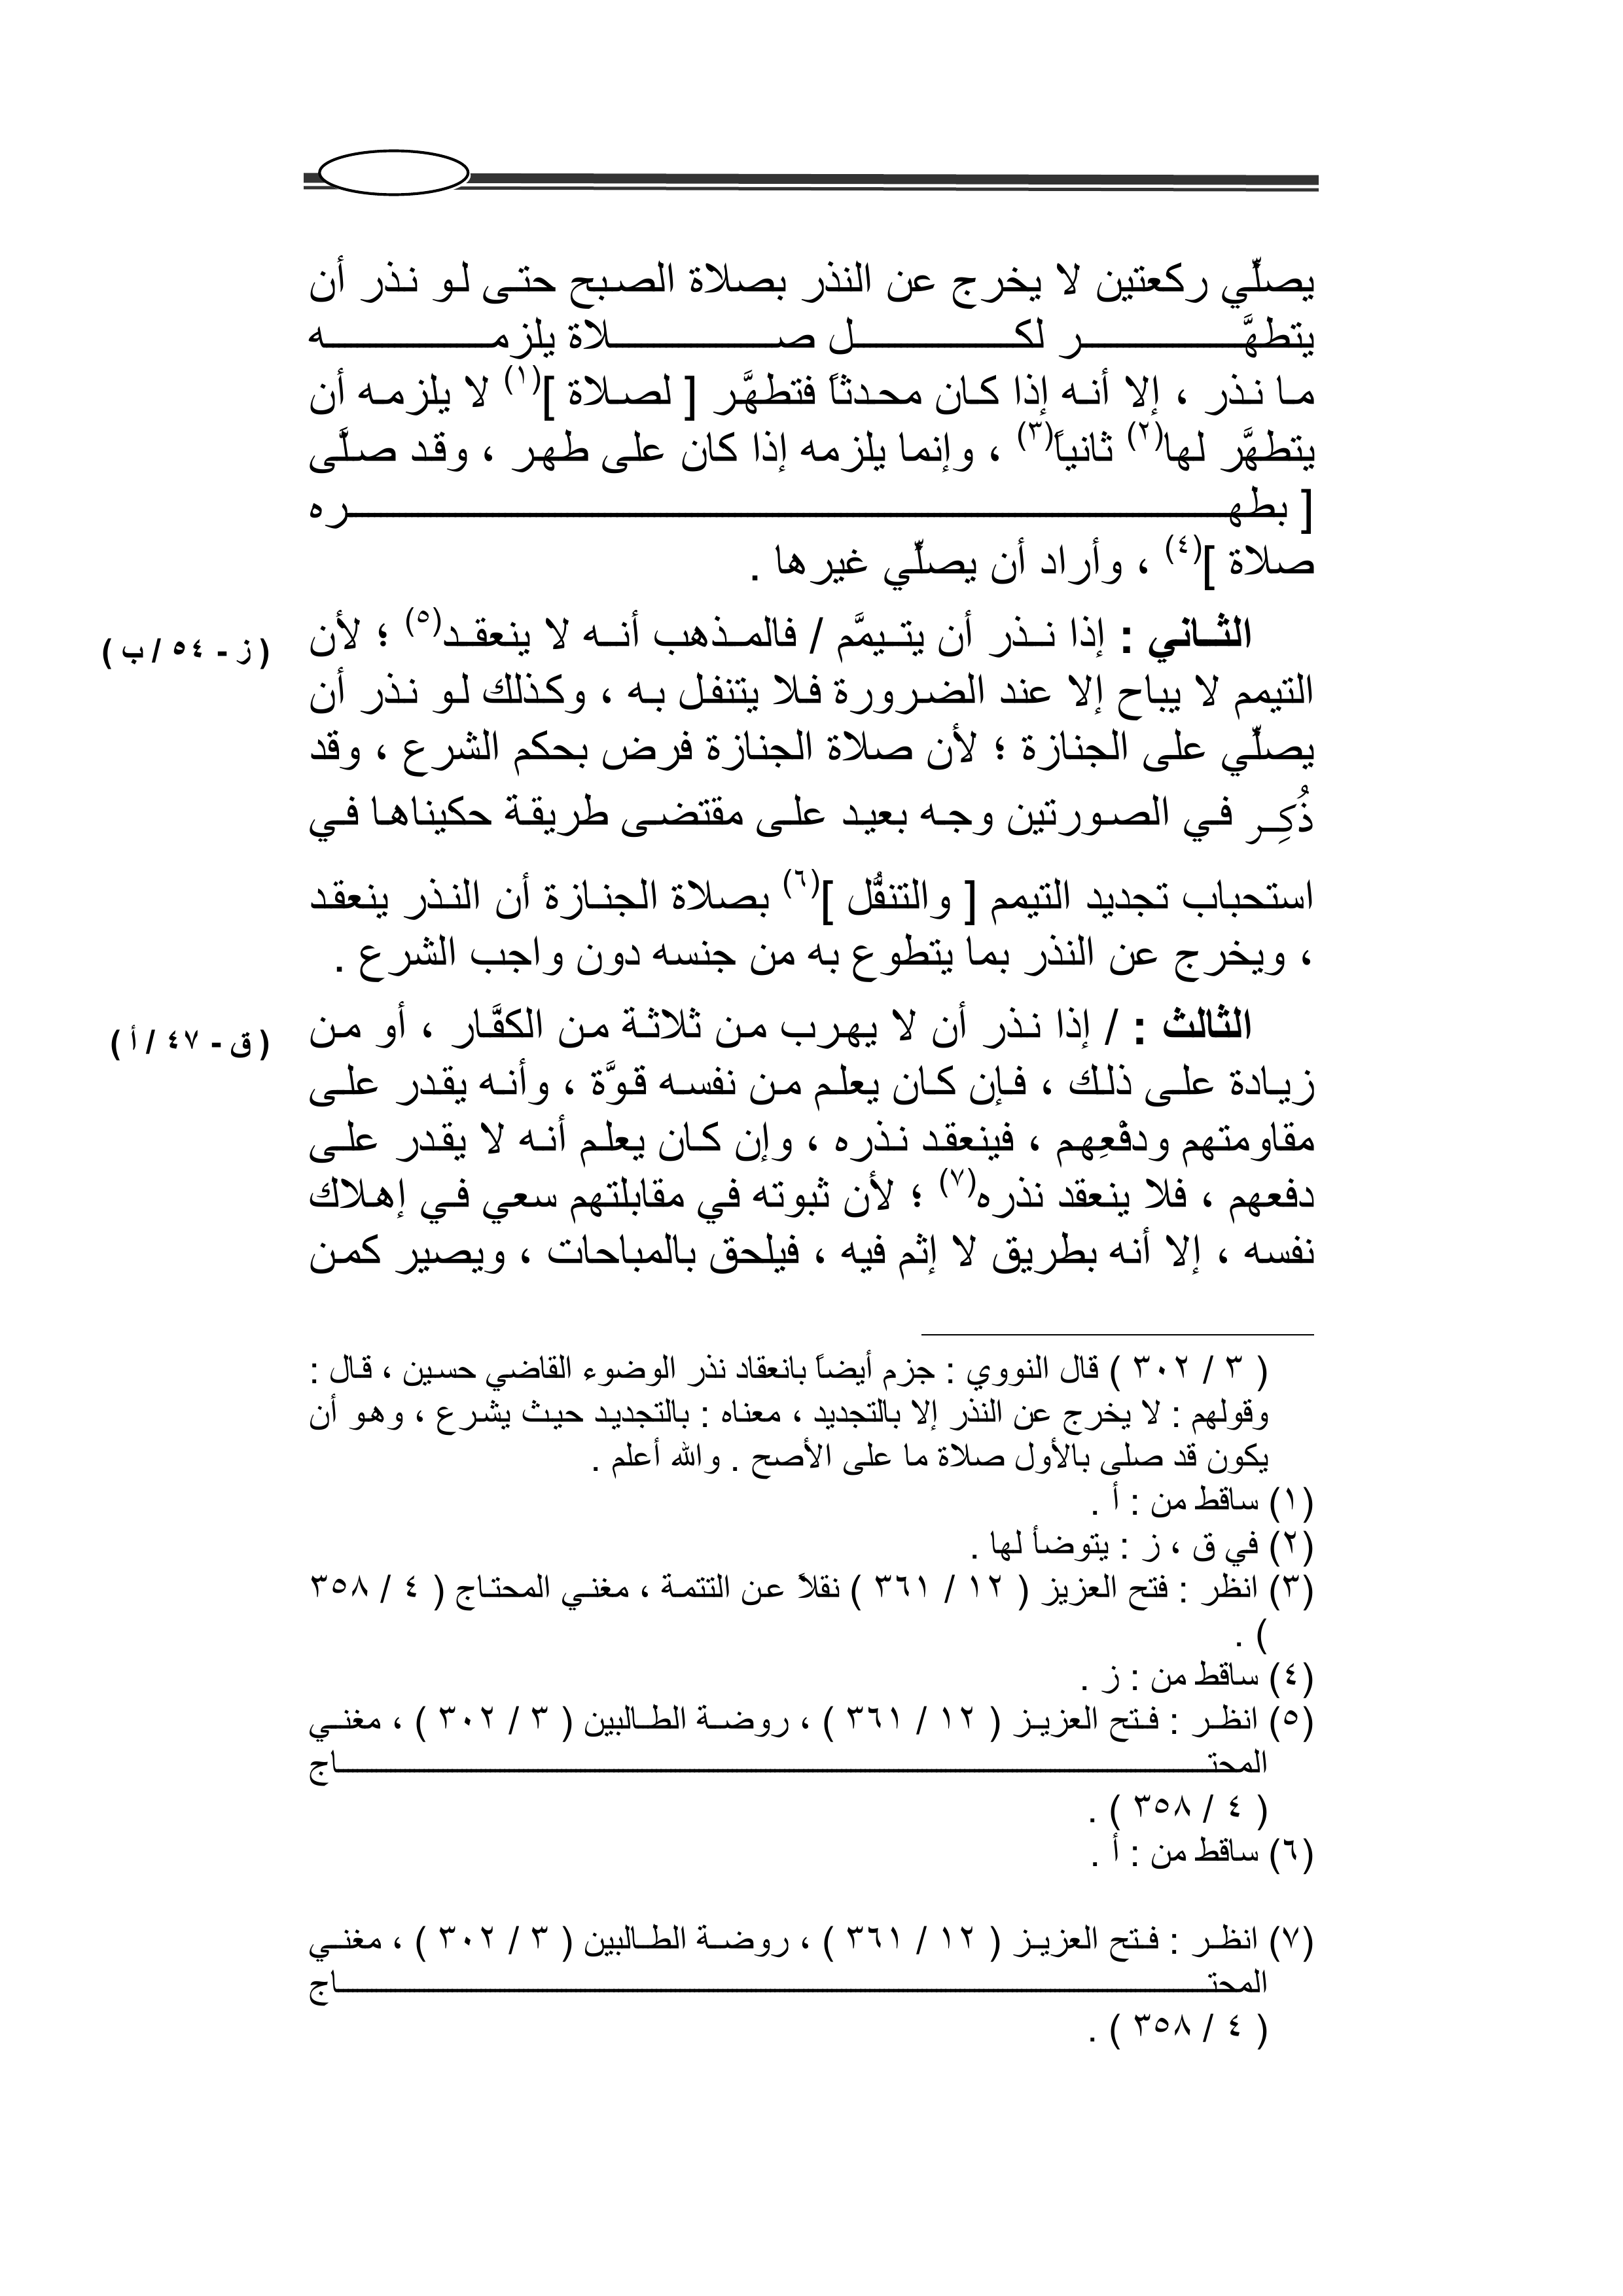 يصلِّي ركعتين لا يخرج عن النذر بصلاة الصبح حتى لو نذر أن
يتطهَّر لكل صلاة يلزمه
ما نذر ، إلا أنه إذا كان محدثاً فتطهَّر [ لصلاة ](١) لا يلزمه أن
يتطهَّر لها(٢) ثانياً(٣) ، وإنما يلزمه إذا كان على طهر ، وقد صلَّى
[ بطهره
صلاة ](٤) ، وأراد أن يصلِّي غيرها .
الثاني : إذا نذر أن يتيمَّم / فالمذهب أنه لا ينعقد(٥) ؛ لأن
( ز - ٥٤ / ب )
التيمم لا يباح إلا عند الضرورة فلا يتنفل به ، وكذلك لو نذر أن
يصلِّي على الجنازة ؛ لأن صلاة الجنازة فرض بحكم الشرع ، وقد
ذُكِر في الصورتين وجه بعيد على مقتضى طريقة حكيناها في
استحباب تجديد التيمم [ والتنفُّل ](٦) بصلاة الجنازة أن النذر ينعقد
، ويخرج عن النذر بما يتطوع به من جنسه دون واجب الشرع .
الثالث : / إذا نذر أن لا يهرب من ثلاثة من الكفَّار ، أو من
( ق - ٤٧ / أ )
زيادة على ذلك ، فإن كان يعلم من نفسه قوَّة ، وأنه يقدر على
مقاومتهم ودفْعِهم ، فينعقد نذره ، وإن كان يعلم أنه لا يقدر على
دفعهم ، فلا ينعقد نذره(٧) ؛ لأن ثبوته في مقابلتهم سعي في إهلاك
نفسه ، إلا أنه بطريق لا إثم فيه ، فيلحق بالمباحات ، ويصير كمن
( ٣ / ٣٠٢ ) قال النووي : جزم أيضاً بانعقاد نذر الوضوء القاضي حسين ، قال :
وقولهم : لا يخرج عن النذر إلا بالتجديد ، معناه : بالتجديد حيث يشرع ، وهو أن
يكون قد صلى بالأول صلاة ما على الأصح . والله أعلم .
(١) ساقط من : أ .
(٢) في ق ، ز : يتوضأ لها .
(٣) انظر : فتح العزيز ( ١٢ / ٣٦١ ) نقلاً عن التتمة ، مغني المحتاج ( ٤ / ٣٥٨
) .
(٤) ساقط من : ز .
(٥) انظر : فتح العزيز ( ١٢ / ٣٦١ ) ، روضة الطالبين ( ٣ / ٣٠٢ ) ، مغني
المحتاج
( ٤ / ٣٥٨ ) .
(٦) ساقط من : أ .
(٧) انظر : فتح العزيز ( ١٢ / ٣٦١ ) ، روضة الطالبين ( ٣ / ٣٠٢ ) ، مغني
المحتاج
( ٤ / ٣٥٨ ) .